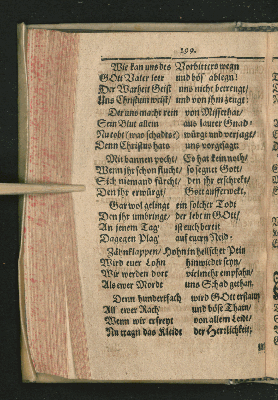 199.
Wie kan uns des Vorbitters wegn
GOtt Vater leer und böß ablegn!
Der Warheit Geist uns nicht betreugt/
Uns Christum weist/ und von ihm zeugt:
Der uns macht rein von Missethat/
Sein Blut allein aus lauter Gnad/
Nu tobt (was schadts?) würgt und versagt/
Denn Christus hats uns vorgesagt
Mit bannen pocht/ Es hat kein noth/
Wenn ihr schon flucht/ so segnet Gott/
Sich niemand fürcht/ den ihr erschreckt/
Den ihr erwürgt/ Gott aufferweckt.
Gar wol gelingt ein solcher Todt
Den ihr umbringt/ der lebt in GOtt/
An jenem Tag ist euch bereit
Dagegen Plag auf euren Neid.
Zähnklappen/ Hohn in hellscher Pein
Wird euer Lohn hinwieder seyn/
Wir werden dort vielmehr empfahn/
Als ewer Morde uns Schad gethan.
Denn hundertfach wird GOtt erstattn
All ewer Rach und böse Thatn/
Wenn wir erfreyt von allem Leidt/
An tragn das Kleidt der Herrlichkeit;